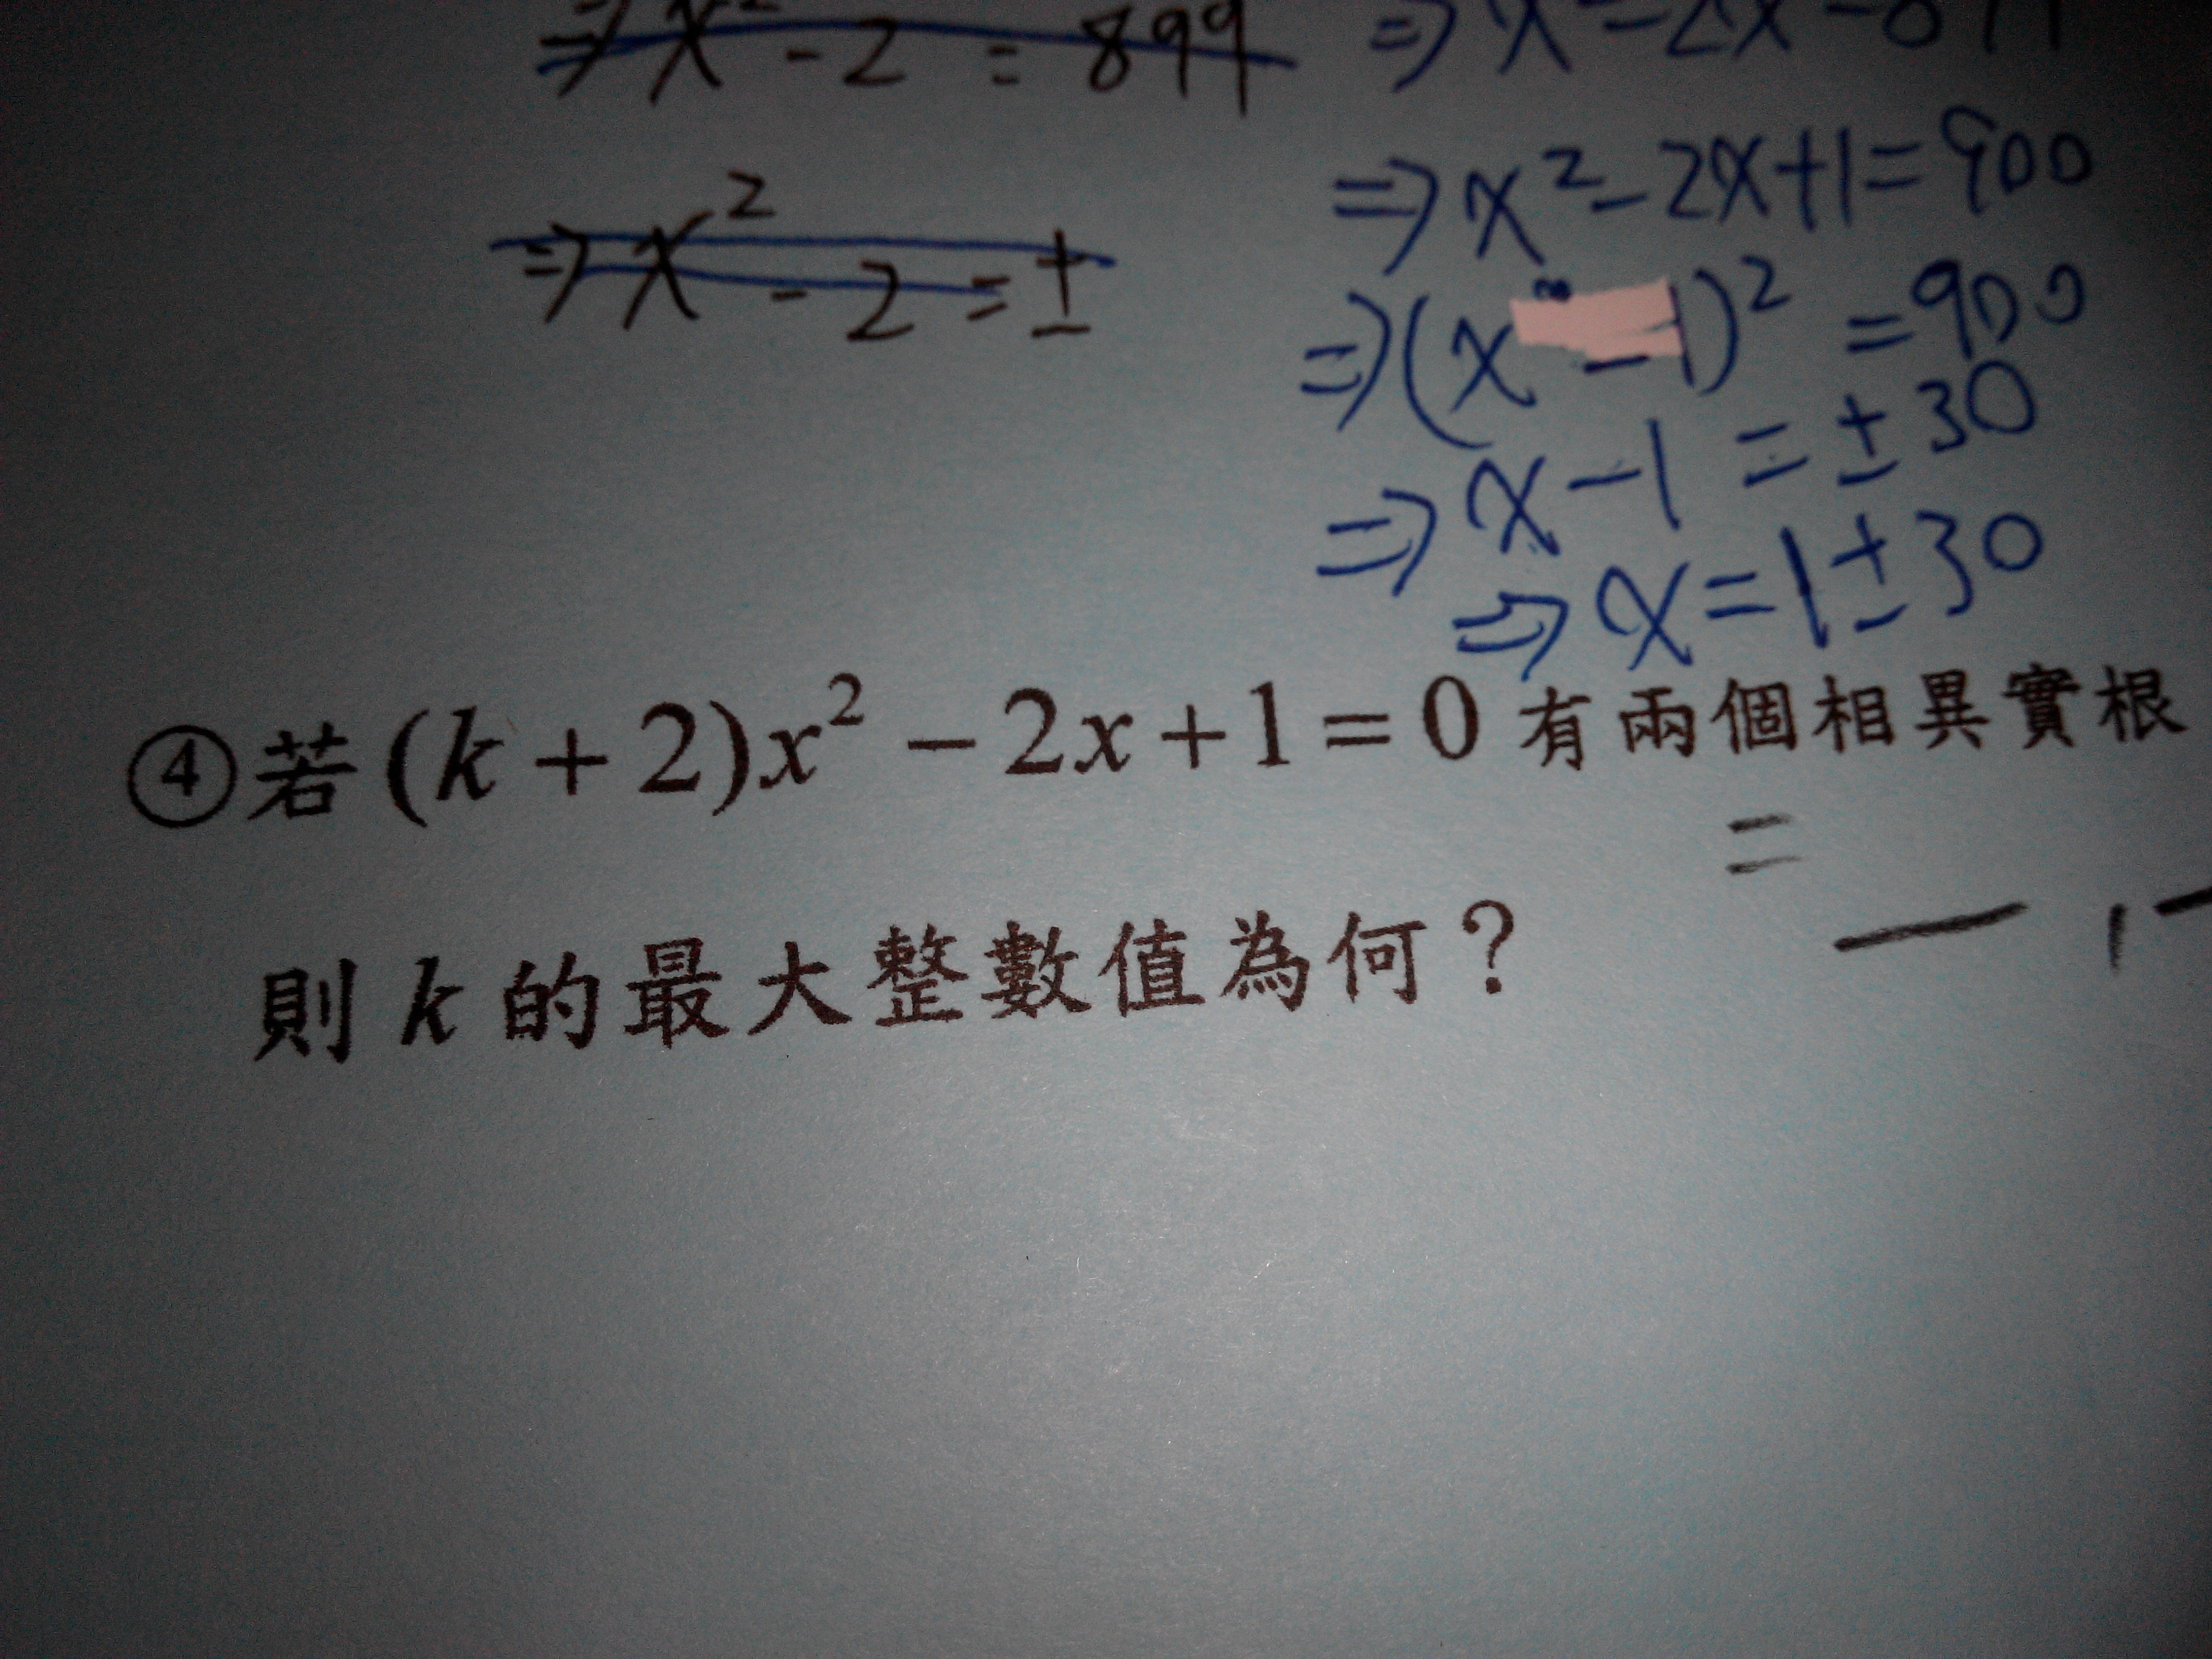 ⇒ x² - 2 = 899
⇒ x² - 2 = ±
⇒ x² - 2x = 899
⇒ x² - 2x + 1 = 900
⇒ (x - 1)² = 900
⇒ x - 1 = ±30
⇒ x = 1 ± 30
④若 (k + 2)x² - 2x + 1 = 0 有兩個相異實根
則 k 的最大整數值為何？